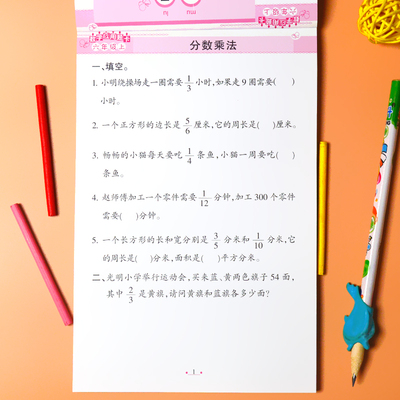 六年级上
分数乘法
一、填空。
1. 小明绕操场走一圈需要 1/3 小时,如果走 9 圈需要(  )
小时。
2. 一个正方形的边长是 5/6 厘米,它的周长是(  )厘米。
3. 畅畅的小猫每天要吃 1/4 条鱼,小猫一周要吃(  )
条鱼。
4. 赵师傅加工一个零件需要 1/12 分钟,加工 300 个零件
需要(  )分钟。
5. 一个长方形的长和宽分别是 3/5 分米和 1/10 分米,它
的周长是(  )分米,面积是(  )平方分米。
二、光明小学举行运动会,买来蓝、黄两色旗子 54 面,
其中 2/3 是黄旗,请问黄旗和蓝旗各多少面?
1